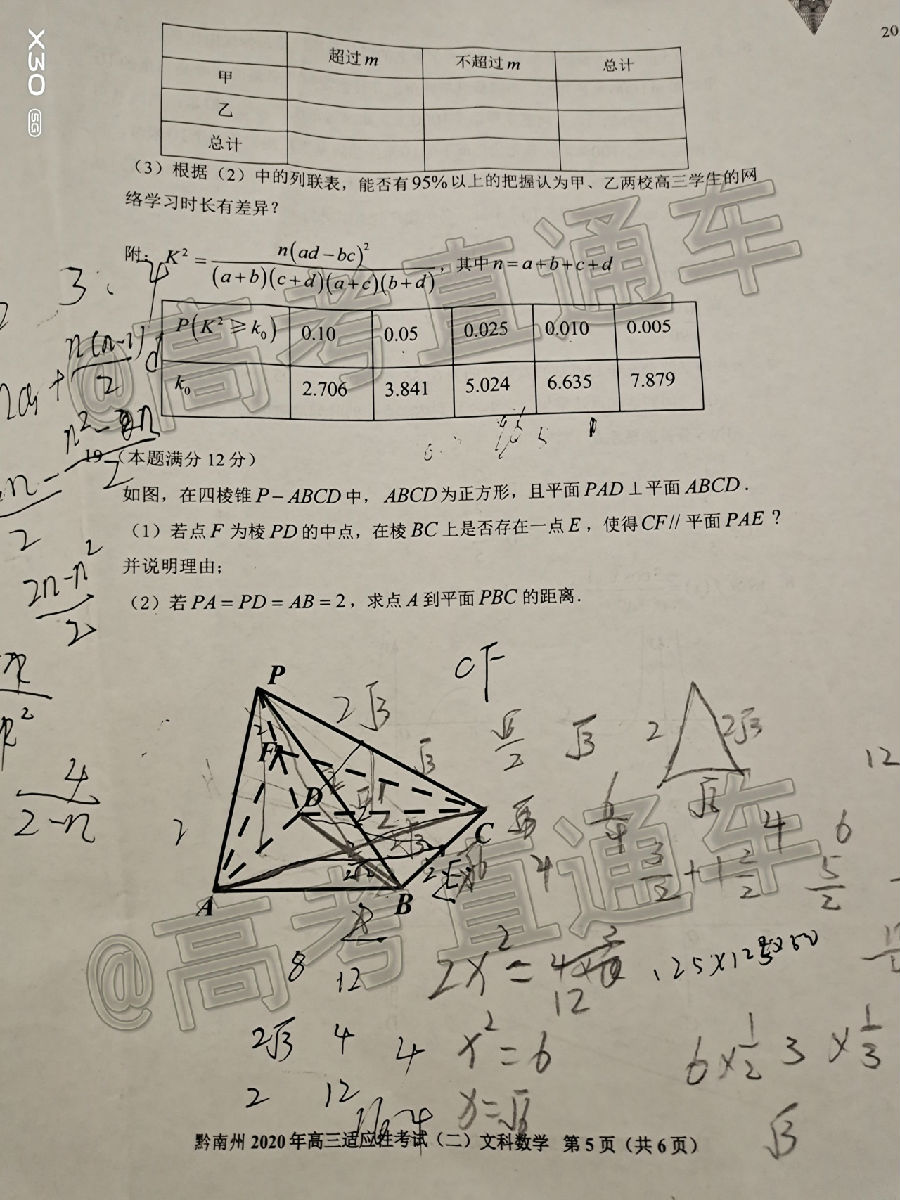 X30 5G
20
超过m 不超过m 总计
甲
乙
总计
(3)根据(2)中的列联表,能否有95%以上的把握认为甲、乙两校高三学生的网
络学习时长有差异?
附: K² = n(ad-bc)² / (a+b)(c+d)(a+c)(b+d), 其中n=a+b+c+d
P(K²≥k₀) 0.10 0.05 0.025 0.010 0.005
k₀ 2.706 3.841 5.024 6.635 7.879
@高考直通车
19 (本题满分12分)
如图,在四棱锥P-ABCD中, ABCD为正方形,且平面PAD⊥平面ABCD.
(1)若点F为棱PD的中点,在棱BC上是否存在一点E,使得CF//平面PAE?
并说明理由;
(2)若PA=PD=AB=2,求点A到平面PBC的距离.
CF
P
2√3
2 2√3
√3
√3
F
D
C
E
A B
4
2-n
2n-n²
2
12
4 6
5/2
3/2+1
@高考直通车
8 12
2x²=
12
2√3 4 4
x²=6
6×1/2 3 ×1/3
2 12
x=√6
√3
黔南州2020年高三适应性考试(二)文科数学 第5页(共6页)